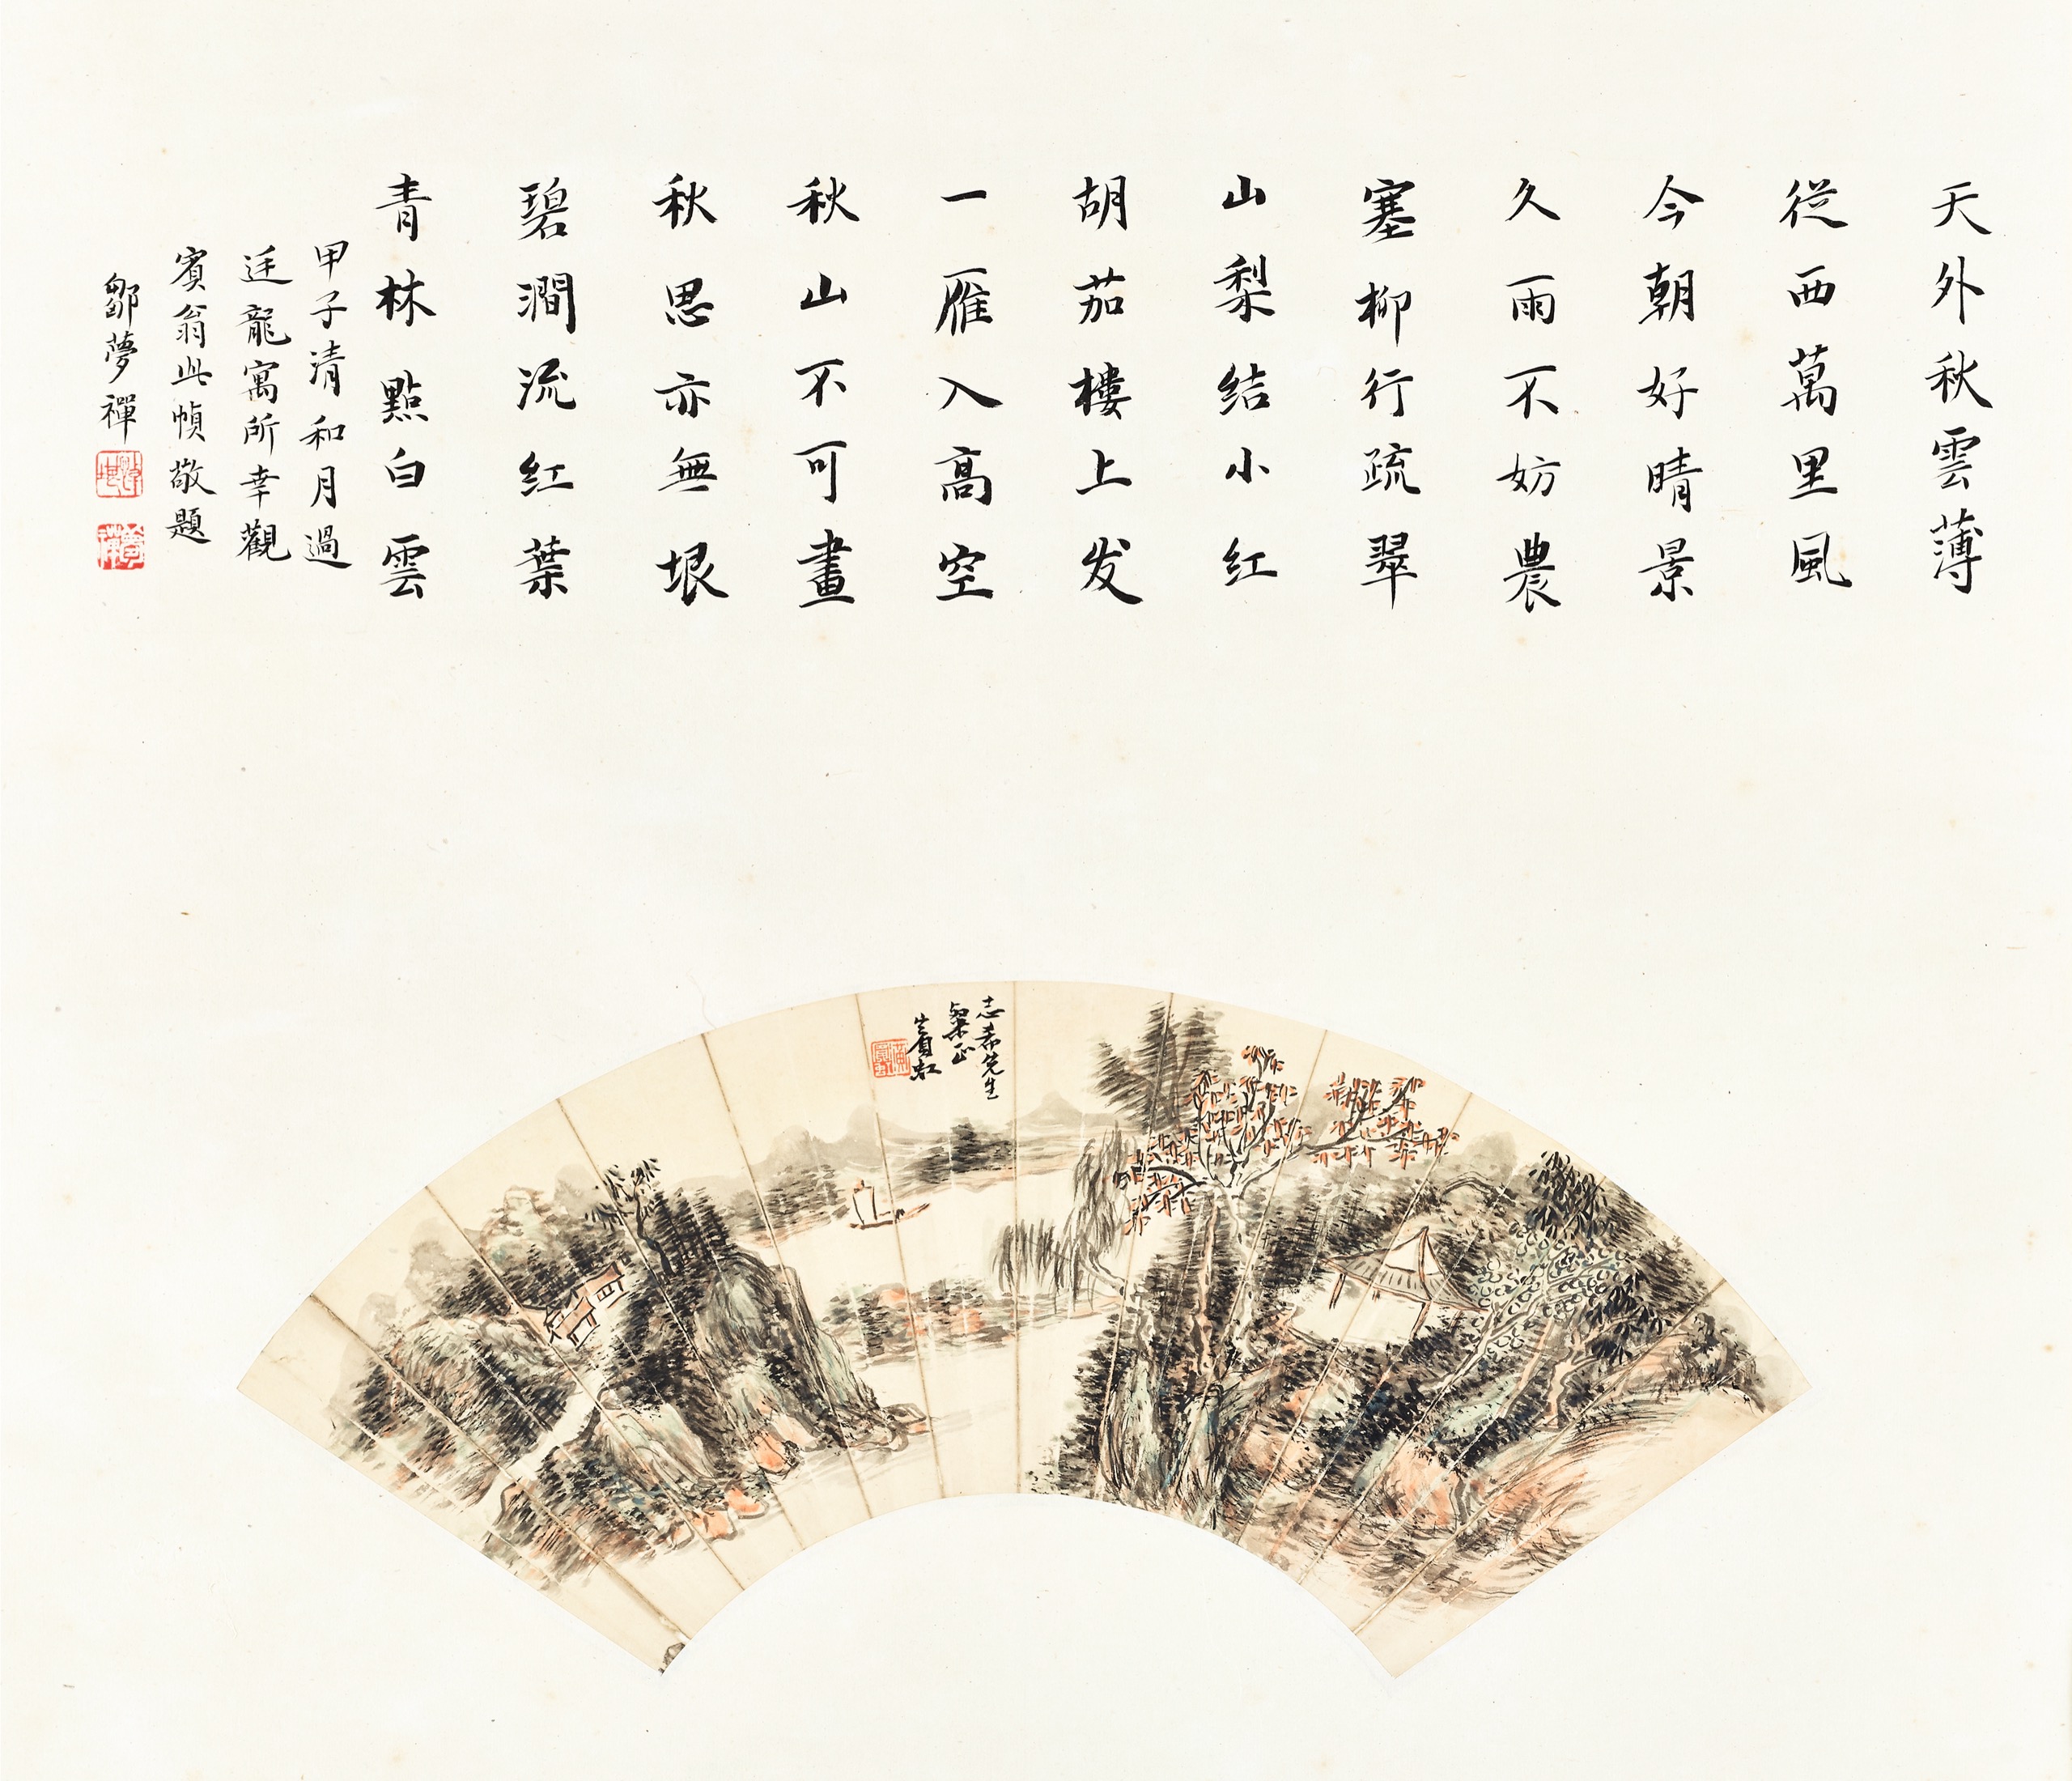 天外秋雲薄
從西萬里風
今朝好晴景
久雨不妨農
塞柳行疏翠
山梨结小红
胡茄樓上发
一雁入高空
秋山不可畫
秋思亦無垠
碧澗流红葉
青林點白雲
甲子清和月過
廷龍寓所幸觀
賓翁此幀敬題
鄒夢禪
志希先生
粲正
賓虹